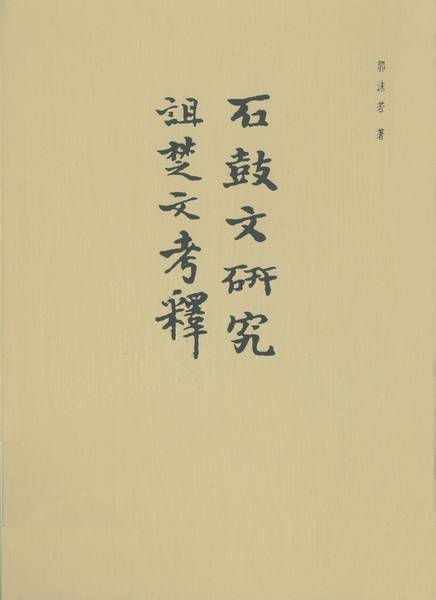 郭沫若 著
石鼓文研究
詛楚文考釋